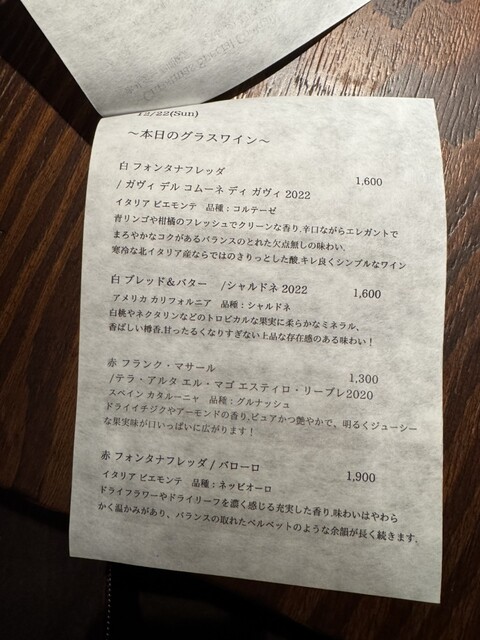 12/22(Sun)
～本日のグラスワイン～
白 フォンタナフレッダ 1,600
/ ガヴィ デル コムーネ ディ ガヴィ 2022
イタリア ピエモンテ 品種：コルテーゼ
青リンゴや柑橘のフレッシュでクリーンな香り.辛口ながらエレガントで
まろやかなコクがあるバランスのとれた欠点無しの味わい.
寒冷な北イタリア産ならではのきりっとした酸.キレ良くシンプルなワイン
白 ブレッド＆バター /シャルドネ 2022 1,600
アメリカ カリフォルニア 品種：シャルドネ
白桃やネクタリンなどのトロピカルな果実に柔らかなミネラル、
香ばしい樽香.甘ったるくなりすぎない上品な存在感のある味わい！
赤 フランク・マサール 1,300
/テラ・アルタ エル・マゴ エスティロ・リーブレ2020
スペイン カタルーニャ 品種：グルナッシュ
ドライイチジクやアーモンドの香り.ピュアかつ艶やかで、明るくジューシー
な果実味が口いっぱいに広がります！
赤 フォンタナフレッダ / バローロ 1,900
イタリア ピエモンテ 品種：ネッビオーロ
ドライフラワーやドライリーフを濃く感じる充実した香り.味わいはやわら
かく温かみがあり、バランスの取れたベルベットのような余韻が長く続きます.